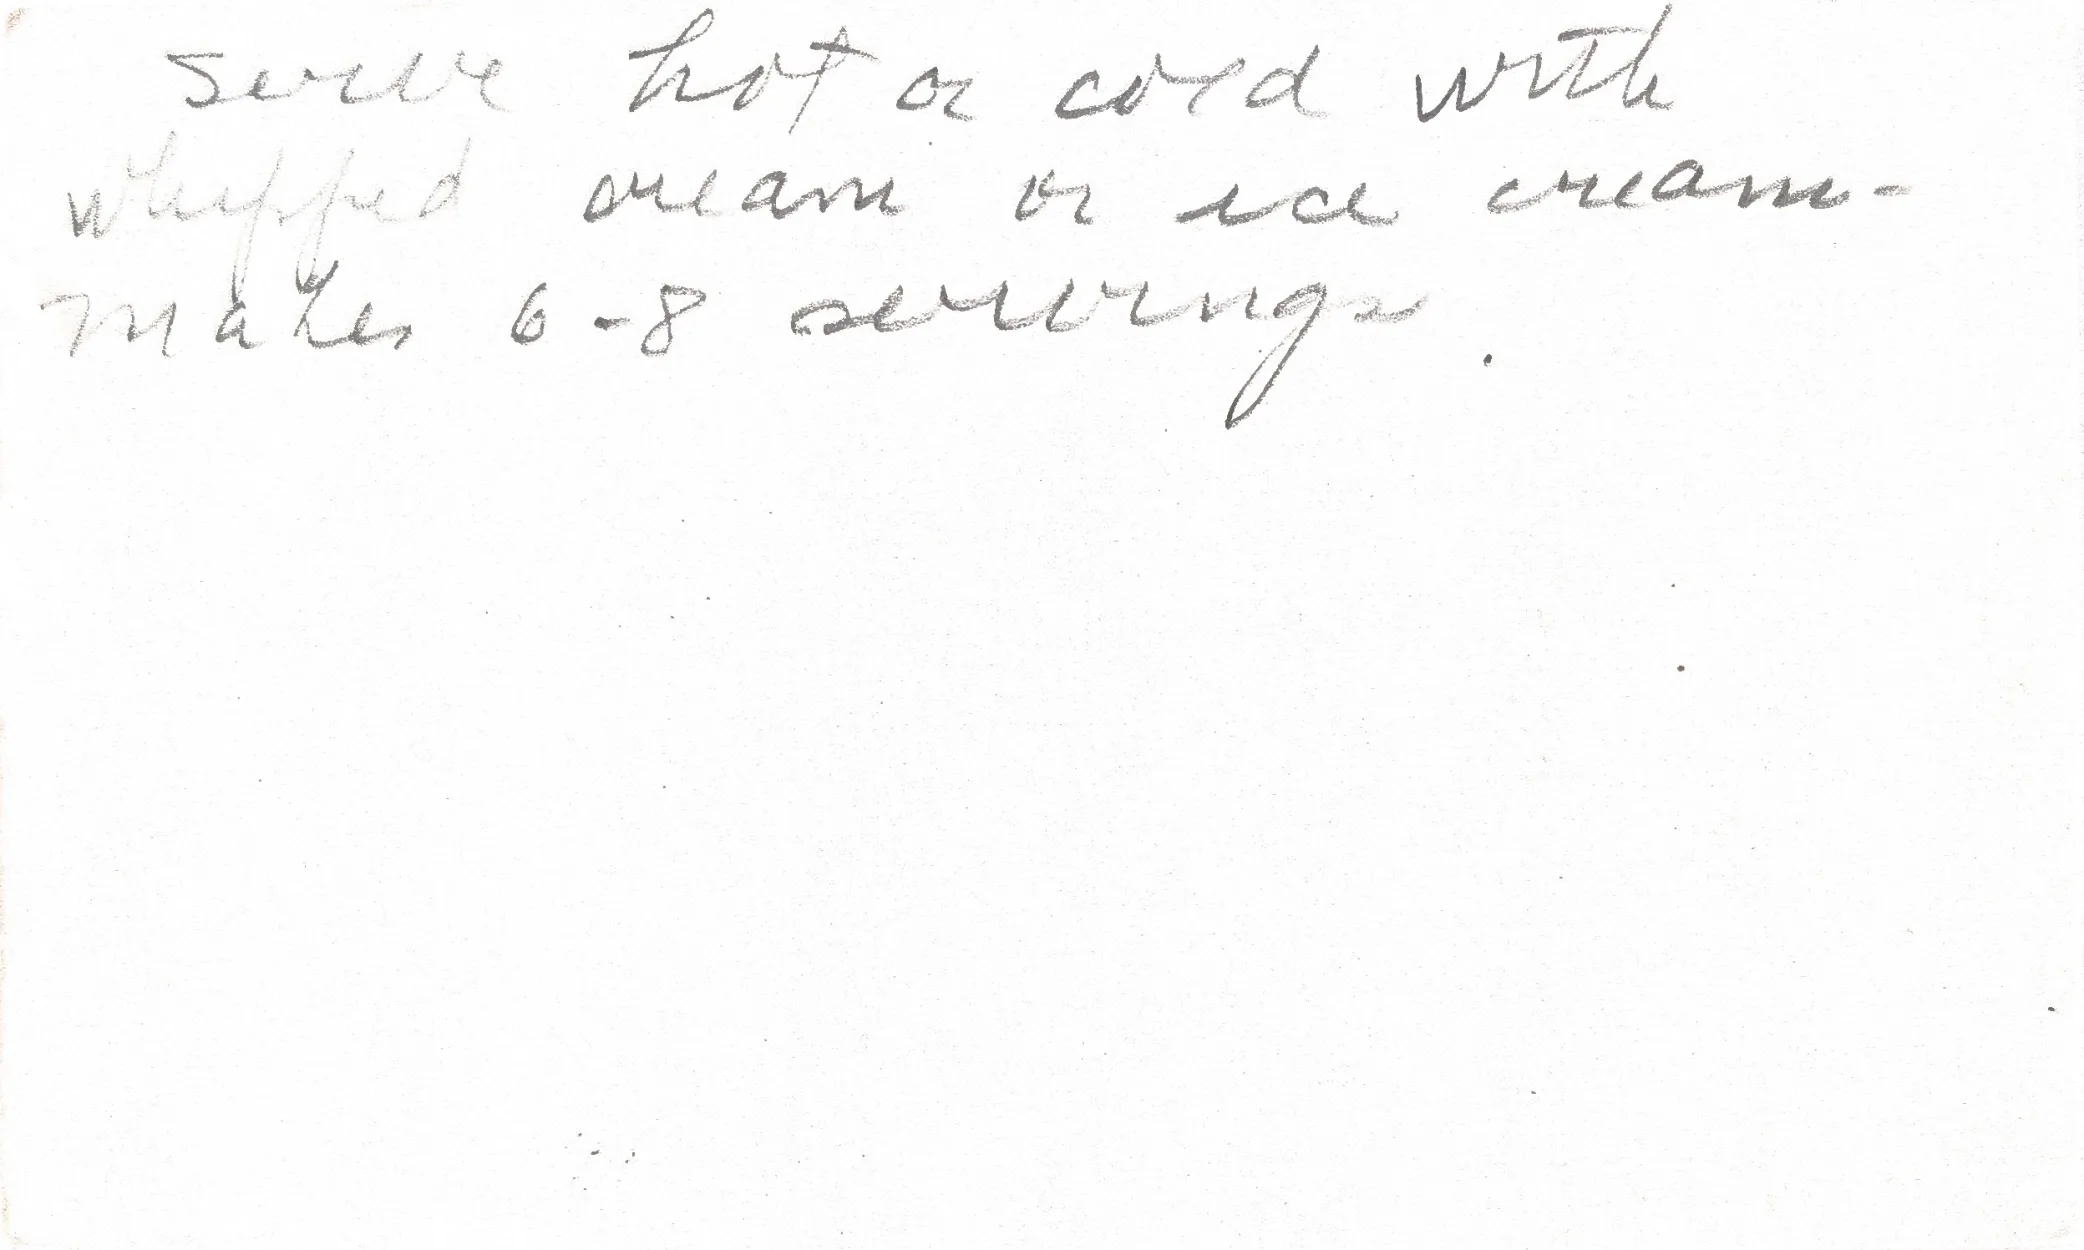 Serve hot or cold with
whipped cream or ice cream-
Makes 6-8 servings.